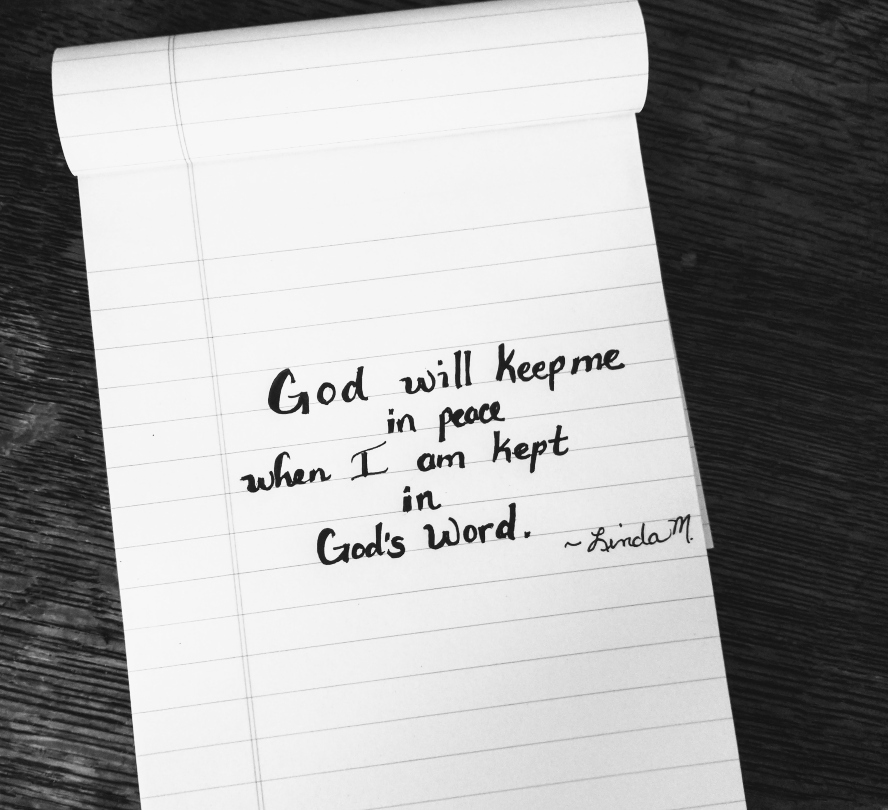 God will keep me
in peace
when I am kept
in
God's Word.
~ Linda M.